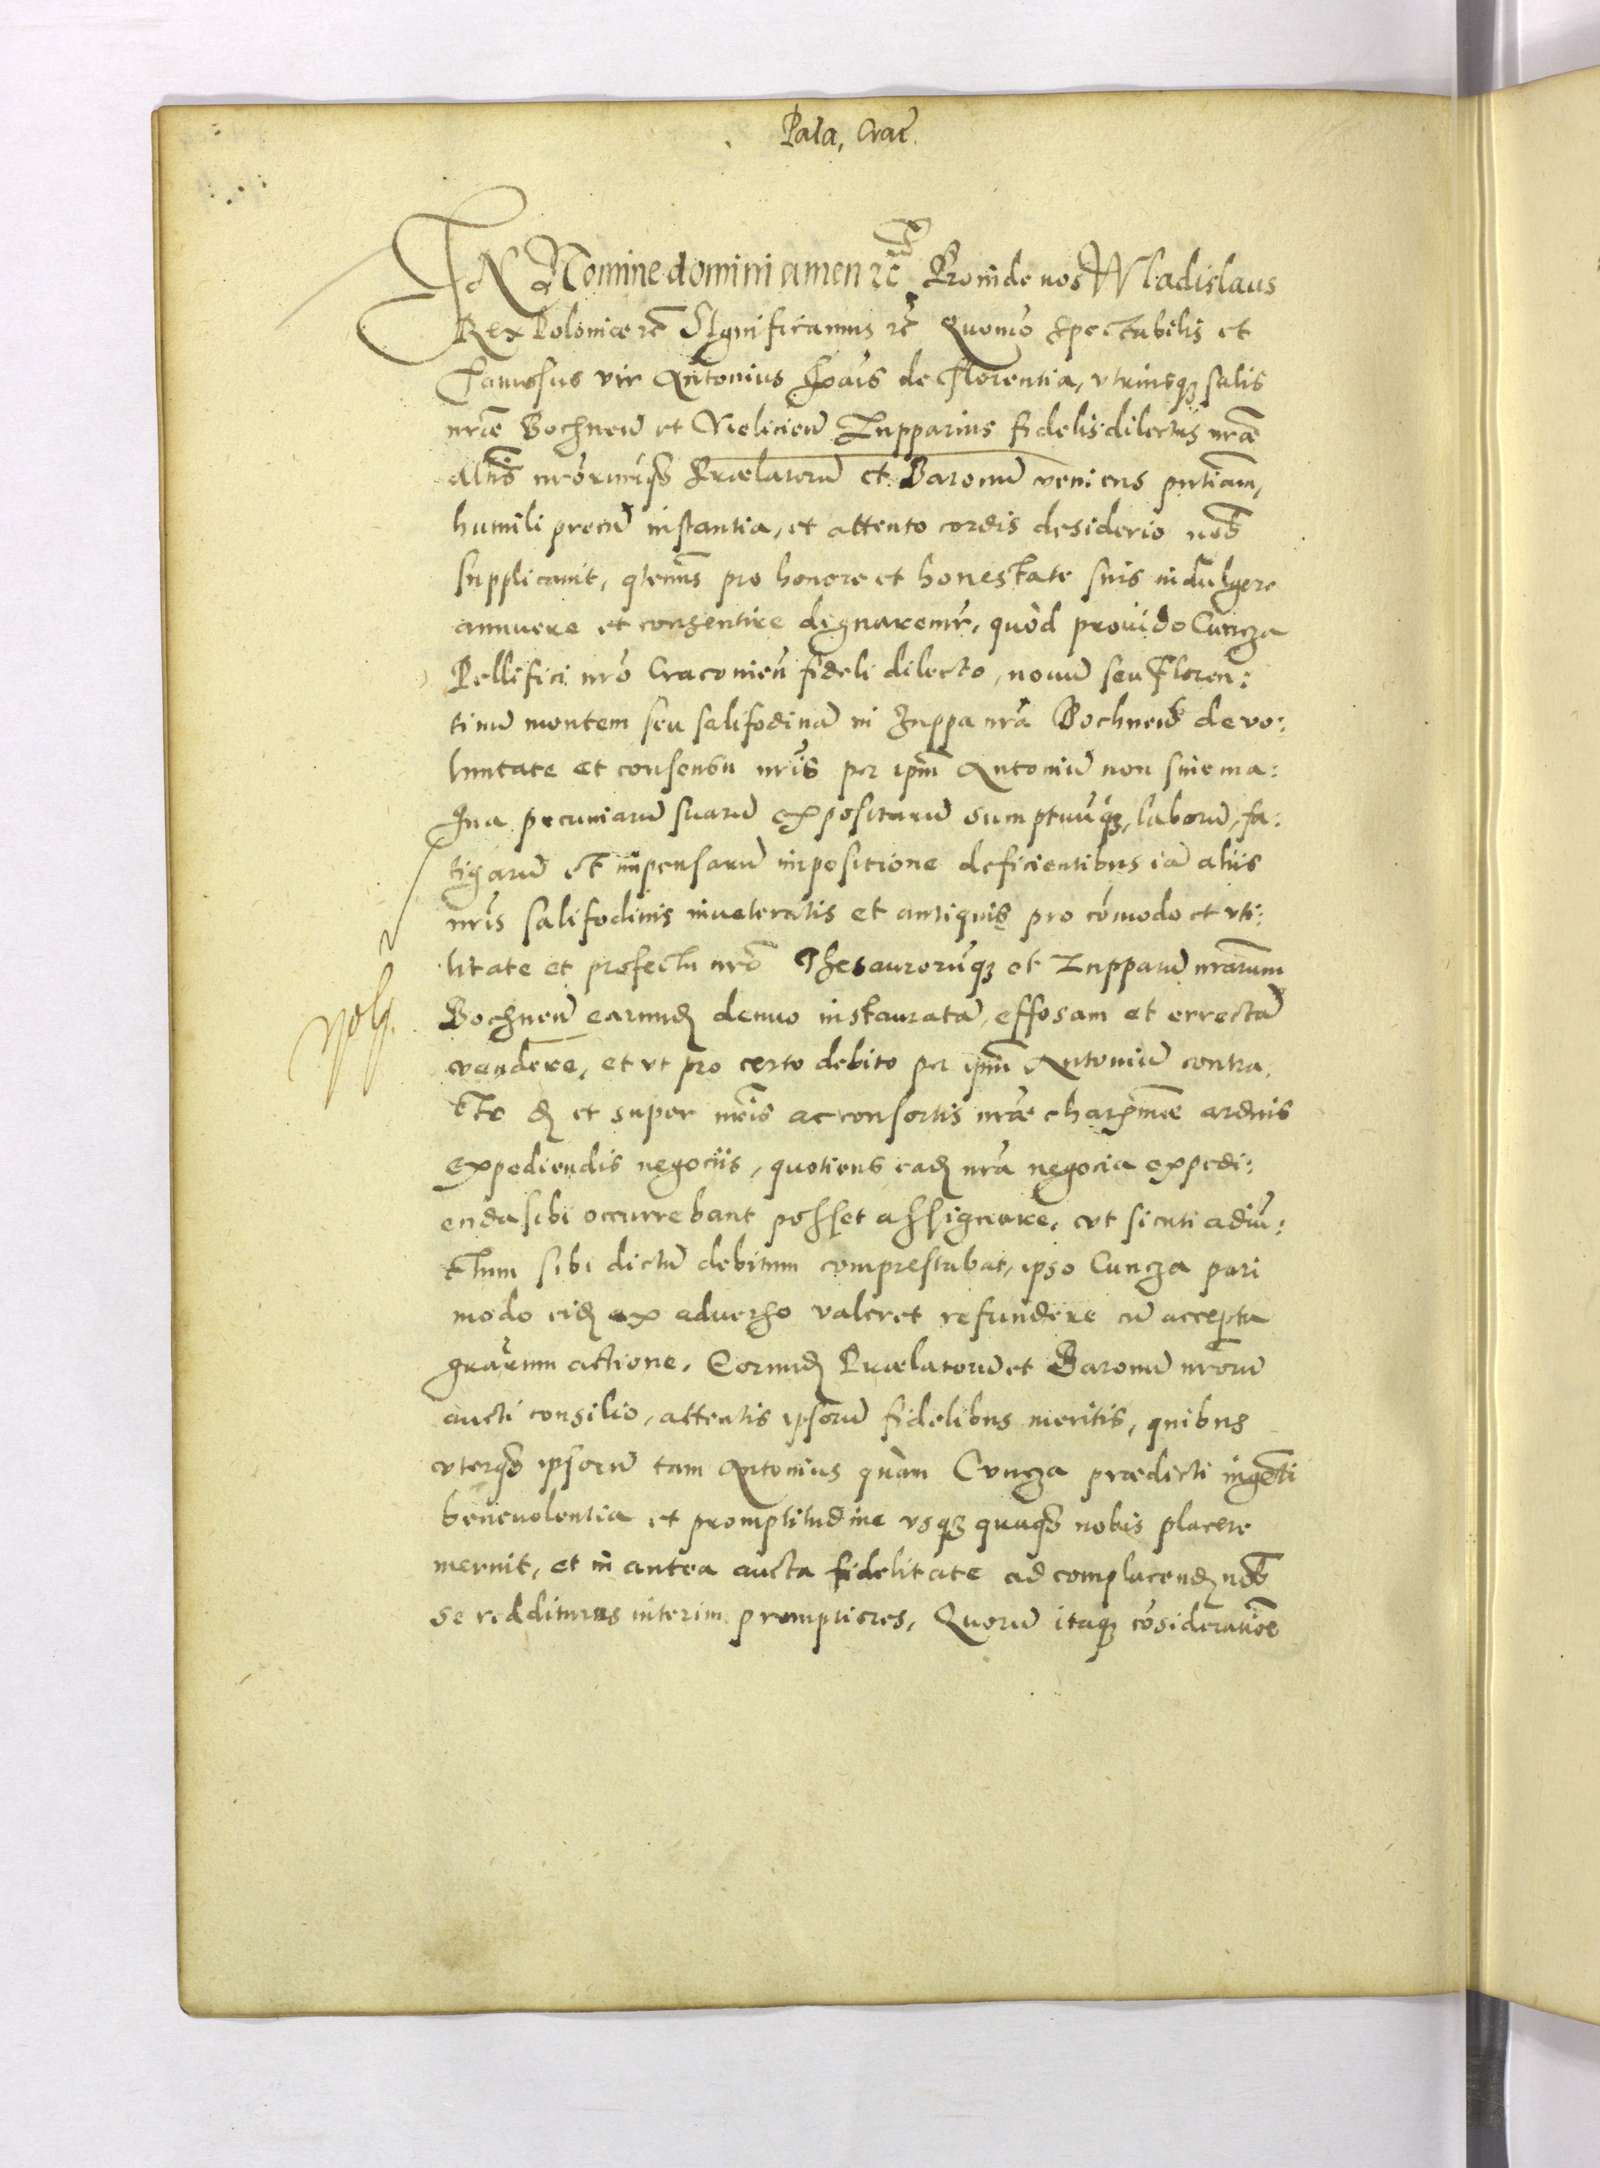 Pala, Crac̄.
IN Nomine domini amen rc̄ Proinde nos Wladislaus
Rex Poloniæ rc̄ Significamus rc̄ Quomō spectabilis et
famossus vir Antonius de Florentia, vtriusq₃ salis
nr̄æ Bochneñ et Vieliciеñ Zupparius fidelis dilectus nr̄æ
nr̄orumq₃ Prælatorū et Baronū veniens pn̄tiam,
humili precū instantia, et attento cordis desiderio nob̄
supplicauit, qtenus pro honore et honestate suis indulgere
annuere et consentire dignaremr̄, quòd prouido Cuncza
Pellifici nr̄o Cracouien̄ fideli dilecto, nouū seu Floren:
tinū montem seu salifodinā in Zuppa nr̄a Bochneñ de vo:
luntate et consensu nr̄is per ipm̄ Antoniū non sine ma:
gna pecuniarū suarū expositarū sumptuūq₃, laborū, fa:
tigarū et impensarū impositione deficientibus iā aliis
nr̄is salifodinis inueteratis et antiquis pro cōmodo et vti:
litate et profectu nr̄o Thesaurorūq₃ et Zupparū nr̄arum
Bochneñ earund̄ denuo instauratā, effosam et errectā
vendere, et vt pro certo debito per ipm̄ Antoniū contra,
cto d̄ et super nr̄is ac consortis nr̄æ charis̄mæ arduis
expediendis negociis, quotiens ead̄ nr̄a negocia expedi:
enda sibi occurrebant posset assignare, vt sicuti adiu:
ctum sibi dictū debitum comprestabat, ipso Cuncza pari
modo eid̄ ex aduerso valeret refundere cū accepta
grārum actione, Eorund̄ Prælatorū et Baronū nr̄orū
aucti consilio, attentis ipsorū fidelibus meritis, quibus
vterq₃ ipsorū tam Antonius quàm Cuncza prædicti ingēti
beneuolentia et promptitudine vsq₃ quaq₃ nobis placere
meruit, et in antea aucta fidelitate ad complacend̄ nob̄
se redditurus interim promptiores, Quorū itaq₃ cōsideratiōe